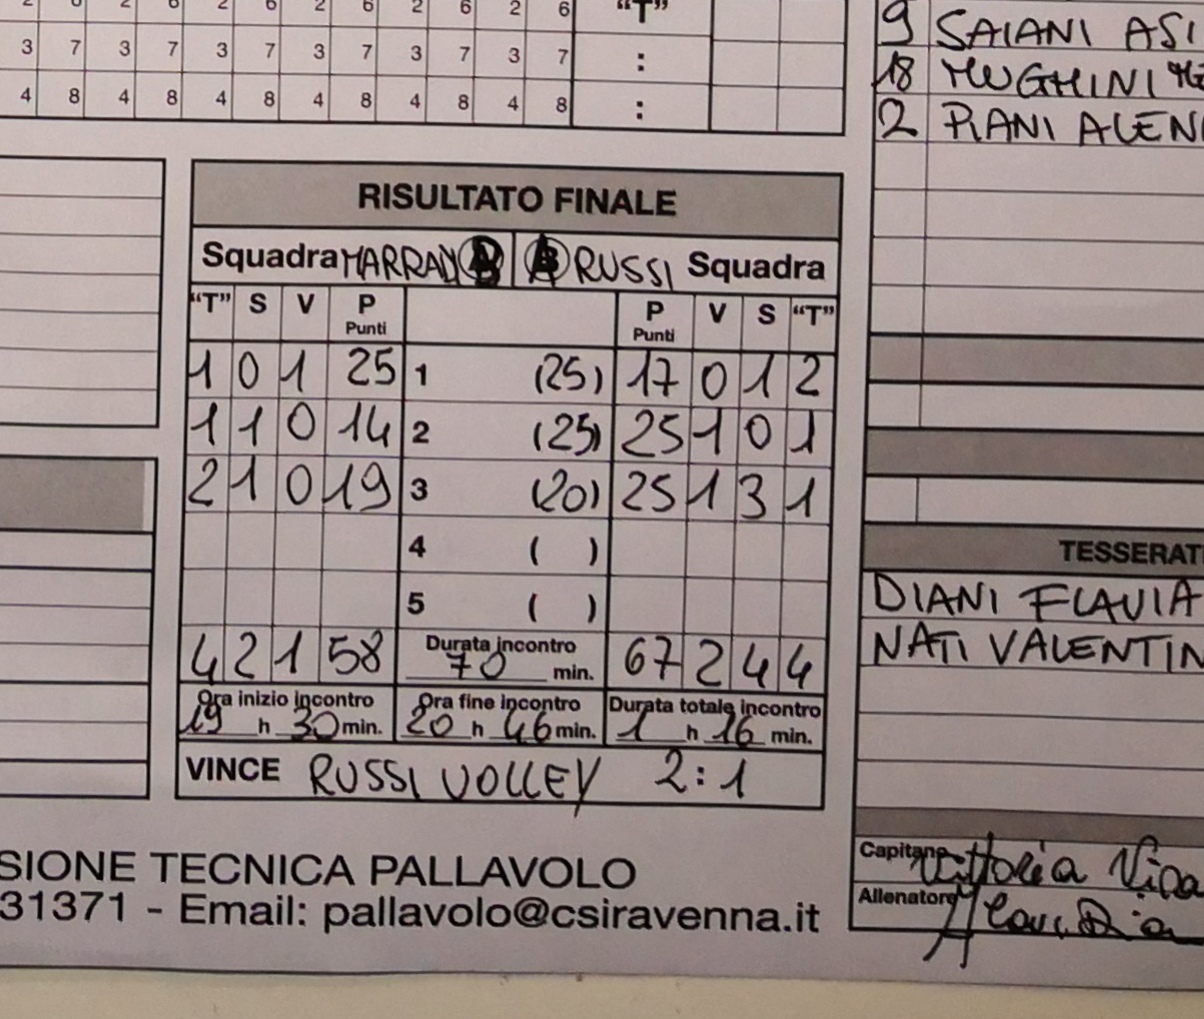 2 6 2 6 2 6 2 6 2 6 2 6 "T"
3 7 3 7 3 7 3 7 3 7 3 7 :
4 8 4 8 4 8 4 8 4 8 4 8 :
9 SAIANI ASI
18 MUGHINI
2 PIANI ALEN
RISULTATO FINALE
Squadra MARRADI B A RUSSI Squadra
"T" S V P Punti P Punti V S "T"
1 0 1 25 1 (25) 17 0 1 2
1 1 0 14 2 (25) 25 1 0 1
2 1 0 19 3 (20) 25 1 3 1
4 ( )
5 ( )
4 2 1 58 Durata incontro 70 min. 67 2 4 4
Ora inizio incontro Ora fine incontro Durata totale incontro
19 h 30 min. 20 h 46 min. 1 h 16 min.
VINCE RUSSI VOLLEY 2:1
TESSERAT
DIANI FLAVIA
NATI VALENTIN
Capitano Vittoria
Allenatore
SIONE TECNICA PALLAVOLO
31371 - Email: pallavolo@csiravenna.it